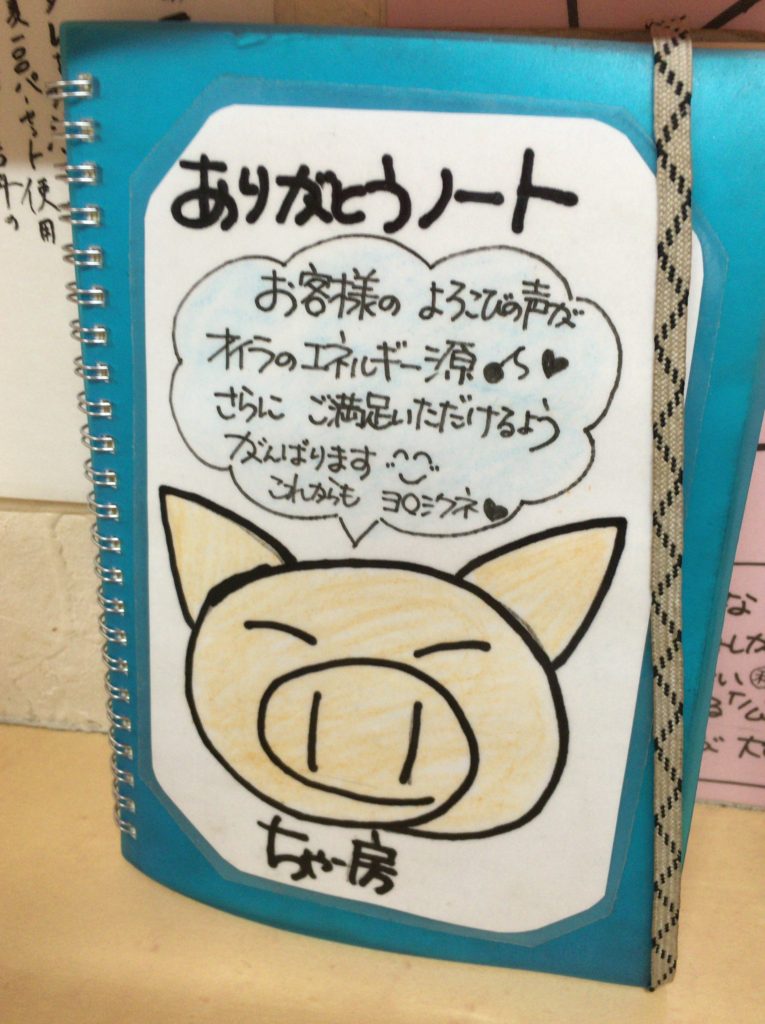 ありがとうノート
お客様の よろこびの声が
オイラのエネルギー源♥
さらに ご満足いただけるよう
がんばります
これからも ヨロシクネ♥
ちゃー房
使用